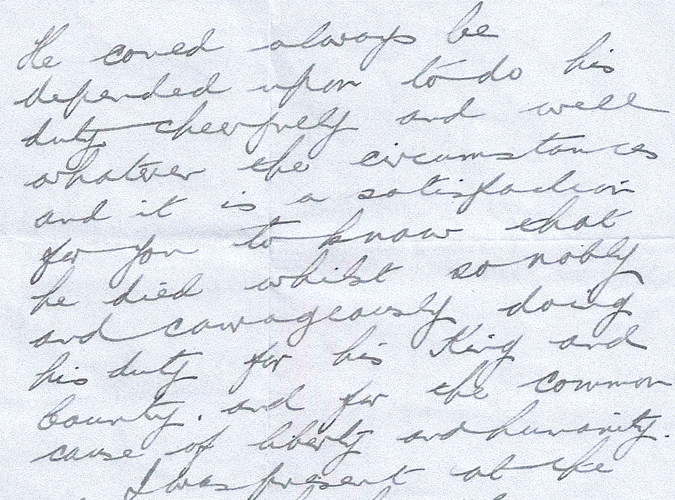 He could always be
depended upon to do his
duty cheerfully and well
whatever the circumstances
and it is a satisfaction
for you to know that
he died whilst so nobly
and courageously doing
his duty for his King and
County. and for the common
cause of liberty and humanity.
I was present at the